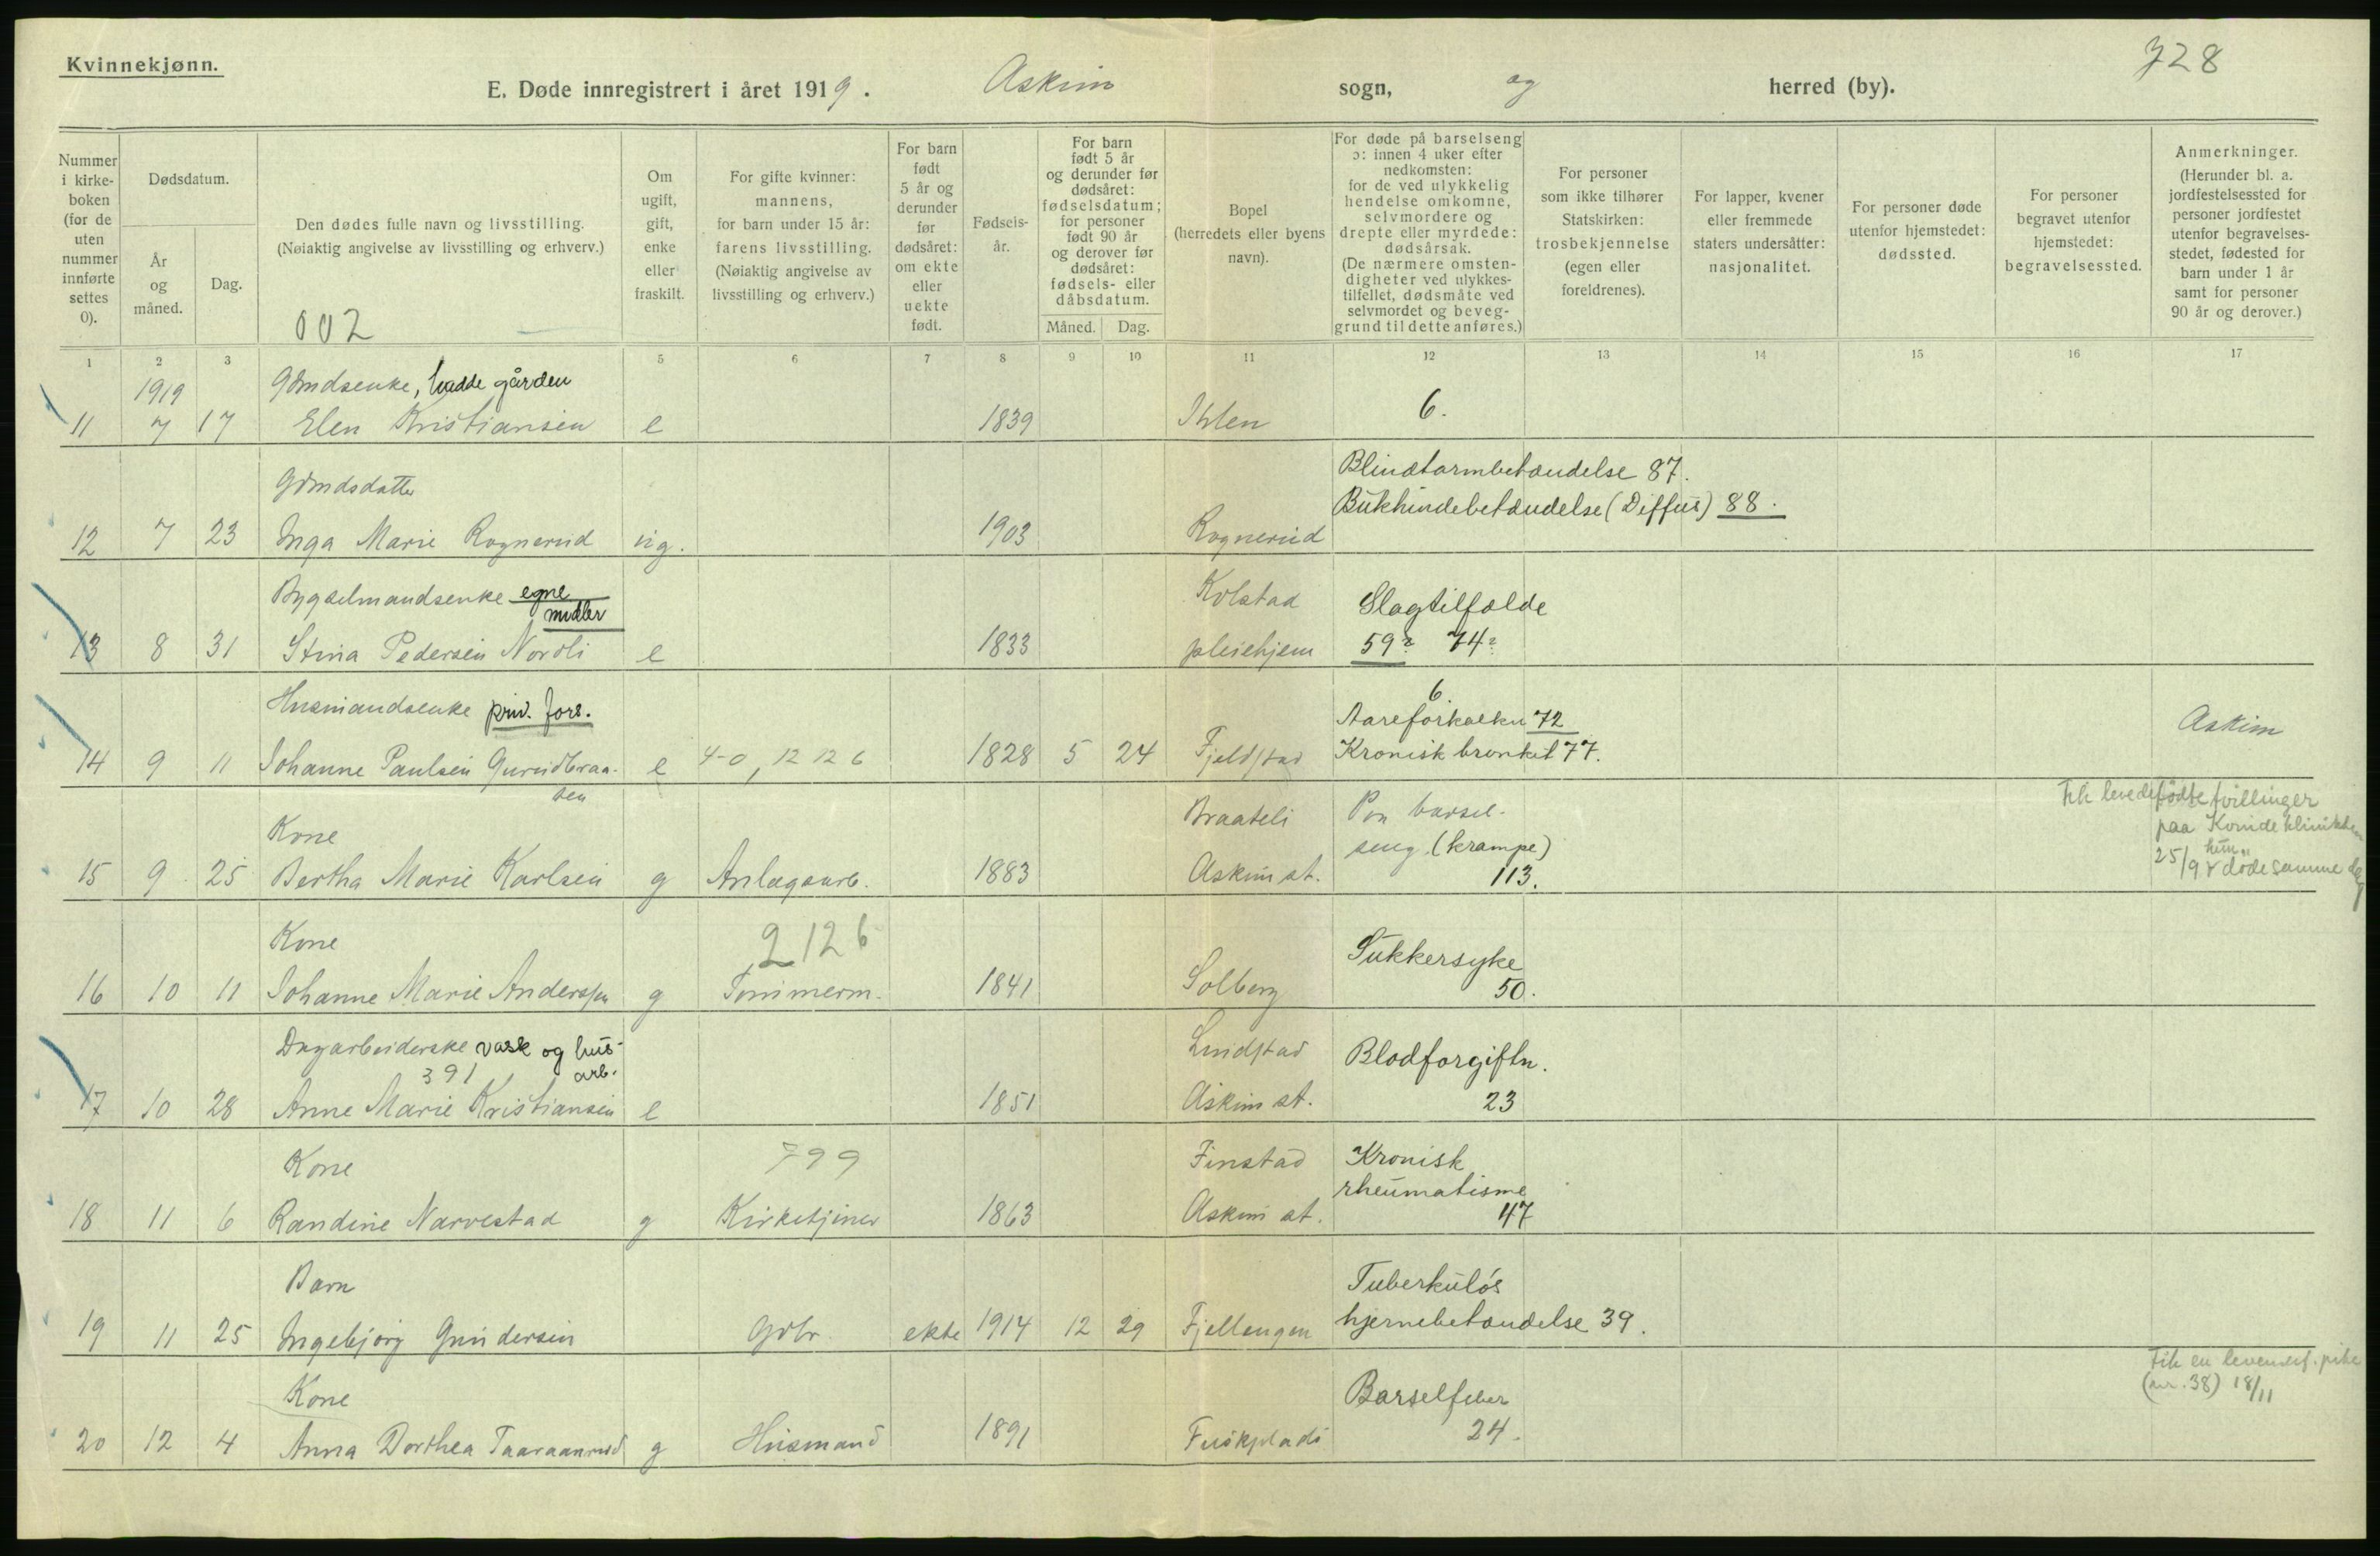 Kvinnekjønn.
728
E. Døde innregistrert i året 1919. Askim sogn, og herred (by).
Nummer i kirkeboken (for de uten nummer innførte settes 0).
Dødsdatum.
År og måned.
Dag.
Den dødes fulle navn og livsstilling.
(Nøiaktig angivelse av livsstilling og erhverv.)
002
Om ugift, gift, enke eller fraskilt.
For gifte kvinner: mannens, for barn under 15 år: farens livsstilling. (Nøiaktig angivelse av livsstilling og erhverv.)
For barn født 5 år og derunder før dødsåret: om ekte eller uekte født.
Fødselsår.
For barn født 5 år og derunder før dødsåret: fødselsdatum; for personer født 90 år og derover før dødsåret: fødsels- eller dåbsdatum.
Måned. Dag.
Bopel (herredets eller byens navn).
For døde på barselseng ɔ: innen 4 uker efter nedkomsten: for de ved ulykkelig hendelse omkomne, selvmordere og drepte eller myrdede: dødsårsak. (De nærmere omstendigheter ved ulykkestilfellet, dødsmåte ved selvmordet og beveggrund til dette anføres.)
For personer som ikke tilhører Statskirken: trosbekjennelse (egen eller foreldrenes).
For lapper, kvener eller fremmede staters undersåtter: nasjonalitet.
For personer døde utenfor hjemstedet: dødssted.
For personer begravet utenfor hjemstedet: begravelsessted.
Anmerkninger. (Herunder bl. a. jordfestelsessted for personer jordfestet utenfor begravelsesstedet, fødested for barn under 1 år samt for personer 90 år og derover.)
1 2 3 5 6 7 8 9 10 11 12 13 14 15 16 17
1919 Gdmdsenke, hadde gården
11 7 17 Elen Kristiansen e 1839 Ihlen 6.
Gdmdsdatter Blindtarmbetændelse 87.
Bukhindebetændelse (Diffus) 88.
12 7 23 Inga Marie Rognerud ug. 1903 Rognerud
Bygselmandsenke egne midler Kolstad Slagtilfælde
13 8 31 Stina Pedersen Nordli e 1833 pleiehjem 59? 74?
Husmandsenke priv. fors. 6.
Aareforkalkn 72 Askim
14 9 11 Johanne Paulsen Gurudbraasen e 4-0, 12 12 6 1828 5 24 Fjeldstad Kronisk bronkit 77.
Fik levedefødte tvillinger
paa Kvindeklinikken
25/9 & hun døde samme dag
Kone Braateli Paa barselseng (krampe)
15 9 25 Bertha Marie Karlsen g Anlægsarb. 1883 Askim st. 113.
Kone 2126 Sukkersyke
16 10 11 Johanne Marie Anderssen g Tømmerm. 1841 Solberg 50.
Dagarbeiderske vask og husarb. Lundstad Blodforgiftn.
391
17 10 28 Anne Marie Kristiansen e 1851 Askim st. 23
Kone 799 Finstad Kronisk rheumatisme
18 11 6 Randine Narvestad g Kirketjener 1863 Askim st. 47
Barn Tuberkuløs
19 11 25 Ingebjørg Gundersen Gdbr. ekte 1914 12 29 Fjellengen hjernebetændelse 39.
Fik en levendef. pike
(nr. 38) 18/11
Kone Barselfeber
20 12 4 Anna Dorthea Taaraanrud g Husmand 1891 24.